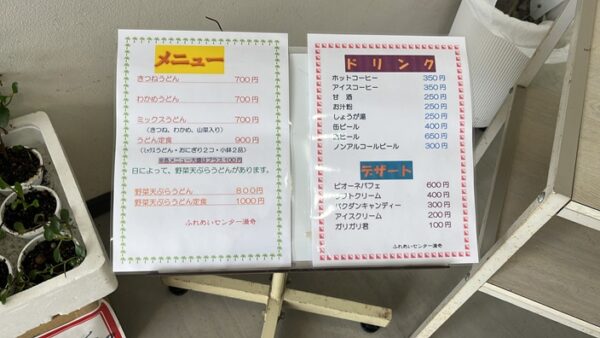 メニュー
きつねうどん 700円
わかめうどん 700円
ミックスうどん 700円
(きつね、わかめ、山菜入り)
うどん定食 900円
(ミックスうどん・おにぎり2コ・小鉢2品)
※各メニュー大盛はプラス100円
日によって、野菜天ぷらうどんがあります。
野菜天ぷらうどん 800円
野菜天ぷらうどん定食 1000円
ふれあいセンター湯舟
ドリンク
ホットコーヒー 350円
アイスコーヒー 350円
甘 酒 250円
お汁粉 250円
しょうが湯 250円
缶ビール 400円
ビール 650円
ノンアルコールビール 300円
デザート
ピオーネパフェ 600円
ソフトクリーム 400円
バクダンキャンディー 300円
アイスクリーム 200円
ガリガリ君 100円